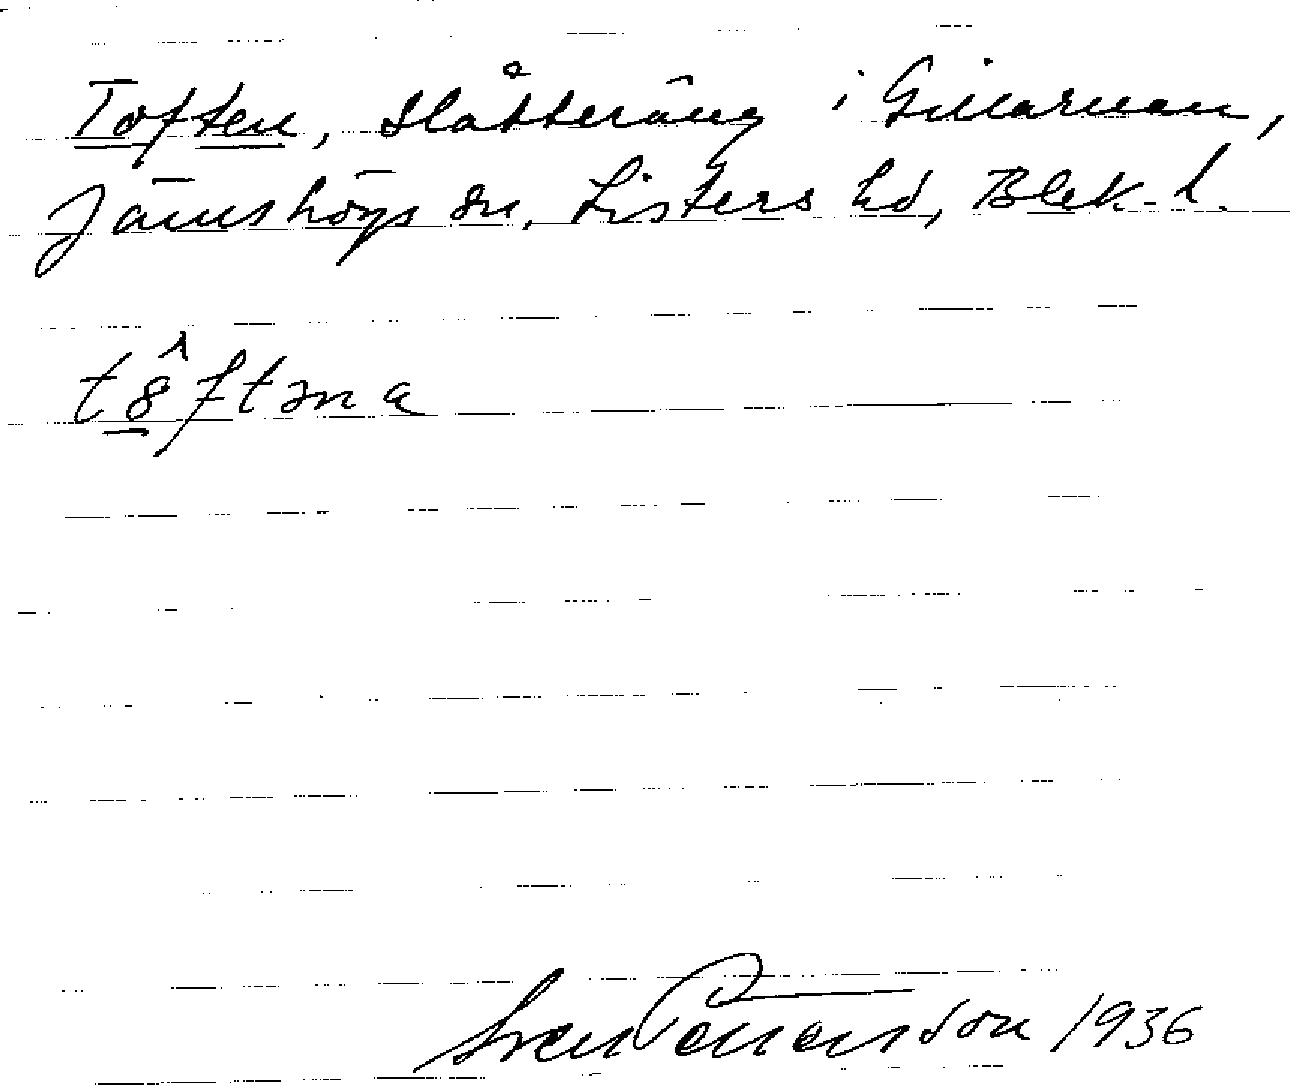 Toften, slåtteräng i Gillarman,
Jämshögs sn, Listers hd, Blek. l.
tôftəna
Sven Pettersson 1936